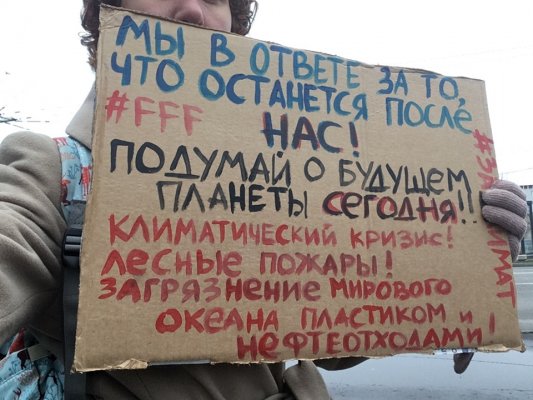 МЫ В ОТВЕТЕ ЗА ТО,
ЧТО ОСТАНЕТСЯ ПОСЛЕ
#FFF
НАС!
ПОДУМАЙ О БУДУЩЕМ
ПЛАНЕТЫ СЕГОДНЯ!!
КЛИМАТИЧЕСКИЙ КРИЗИС!
ЛЕСНЫЕ ПОЖАРЫ!
ЗАГРЯЗНЕНИЕ МИРОВОГО
ОКЕАНА ПЛАСТИКОМ И
НЕФТЕОТХОДАМИ!